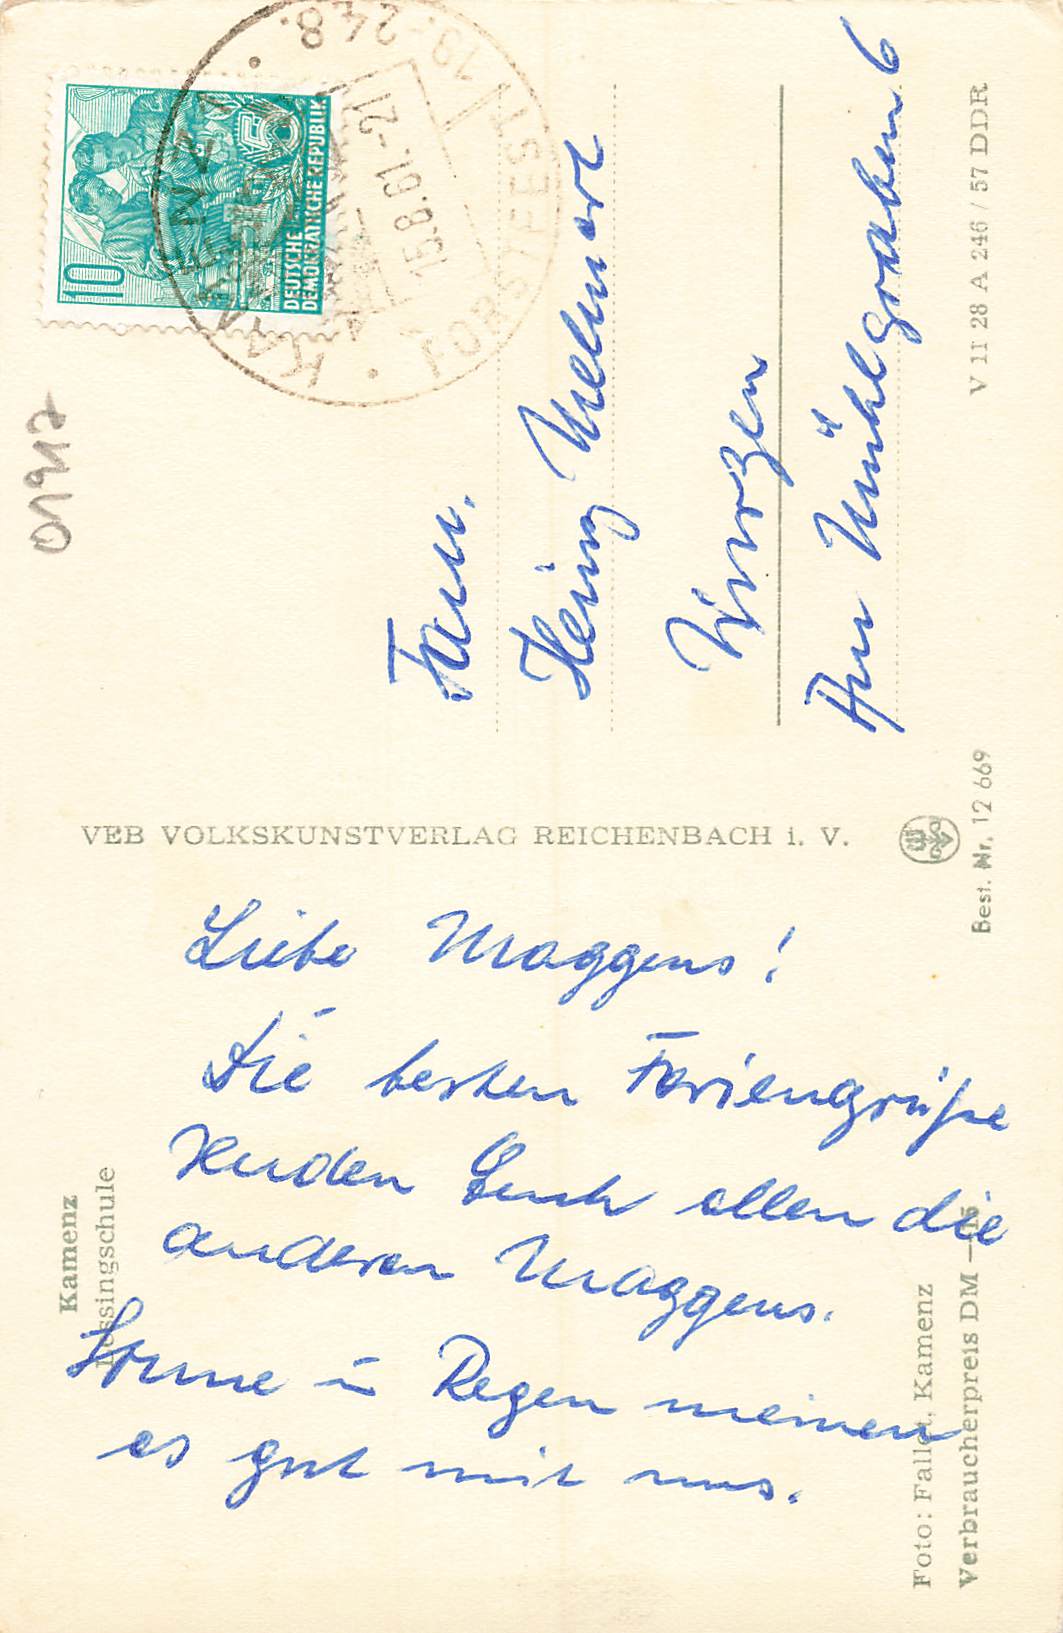 Kamenz
Lessingschule
Liebe Maggens!
Die besten Feriengrüße
senden Euch allen die
anderen Maggens.
Sonne u Regen meinen
es gut mit uns.
Foto: Kamenz
Verbraucherpreis DM
VEB VOLKSKUNSTVERLAG REICHENBACH i. V.
Best. Nr. 12 669
01917
10
DEUTSCHE
DEMOKRATISCHE REPUBLIK
KAMENZ 1
FORSTFEST
19.-24.8.
15.8.61.-21
Fam.
Heinz
Wurzen
Am Mühlgraben 6
V 11 28 A 246 / 57 DDR